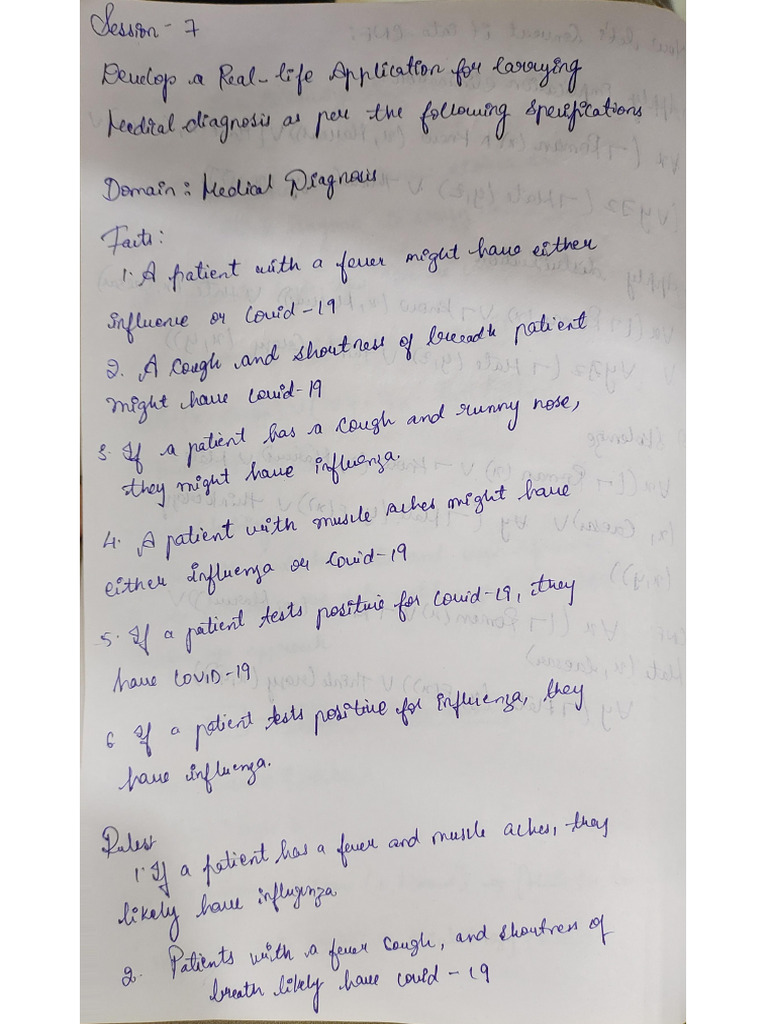 Session - 7
Develop a Real-life Application for carrying
Medical diagnosis as per the following specifications
Domain: Medical Diagnosis
Facts:
1. A patient with a fever might have either
influence or Covid-19
2. A cough and shortness of breadh patient
might have covid-19
3. If a patient has a cough and runny nose,
they might have influenza.
4. A patient with muscle aches might have
either influenza or Covid-19
5. If a patient tests positive for covid-19, they
have COVID-19
6 If a patient tests positive for influenza, they
have influenza.
Rules:
1. If a patient has a fever and muscle aches, they
likely have influenza
2. Patients with a fever cough, and shortness of
breath likely have covid-19